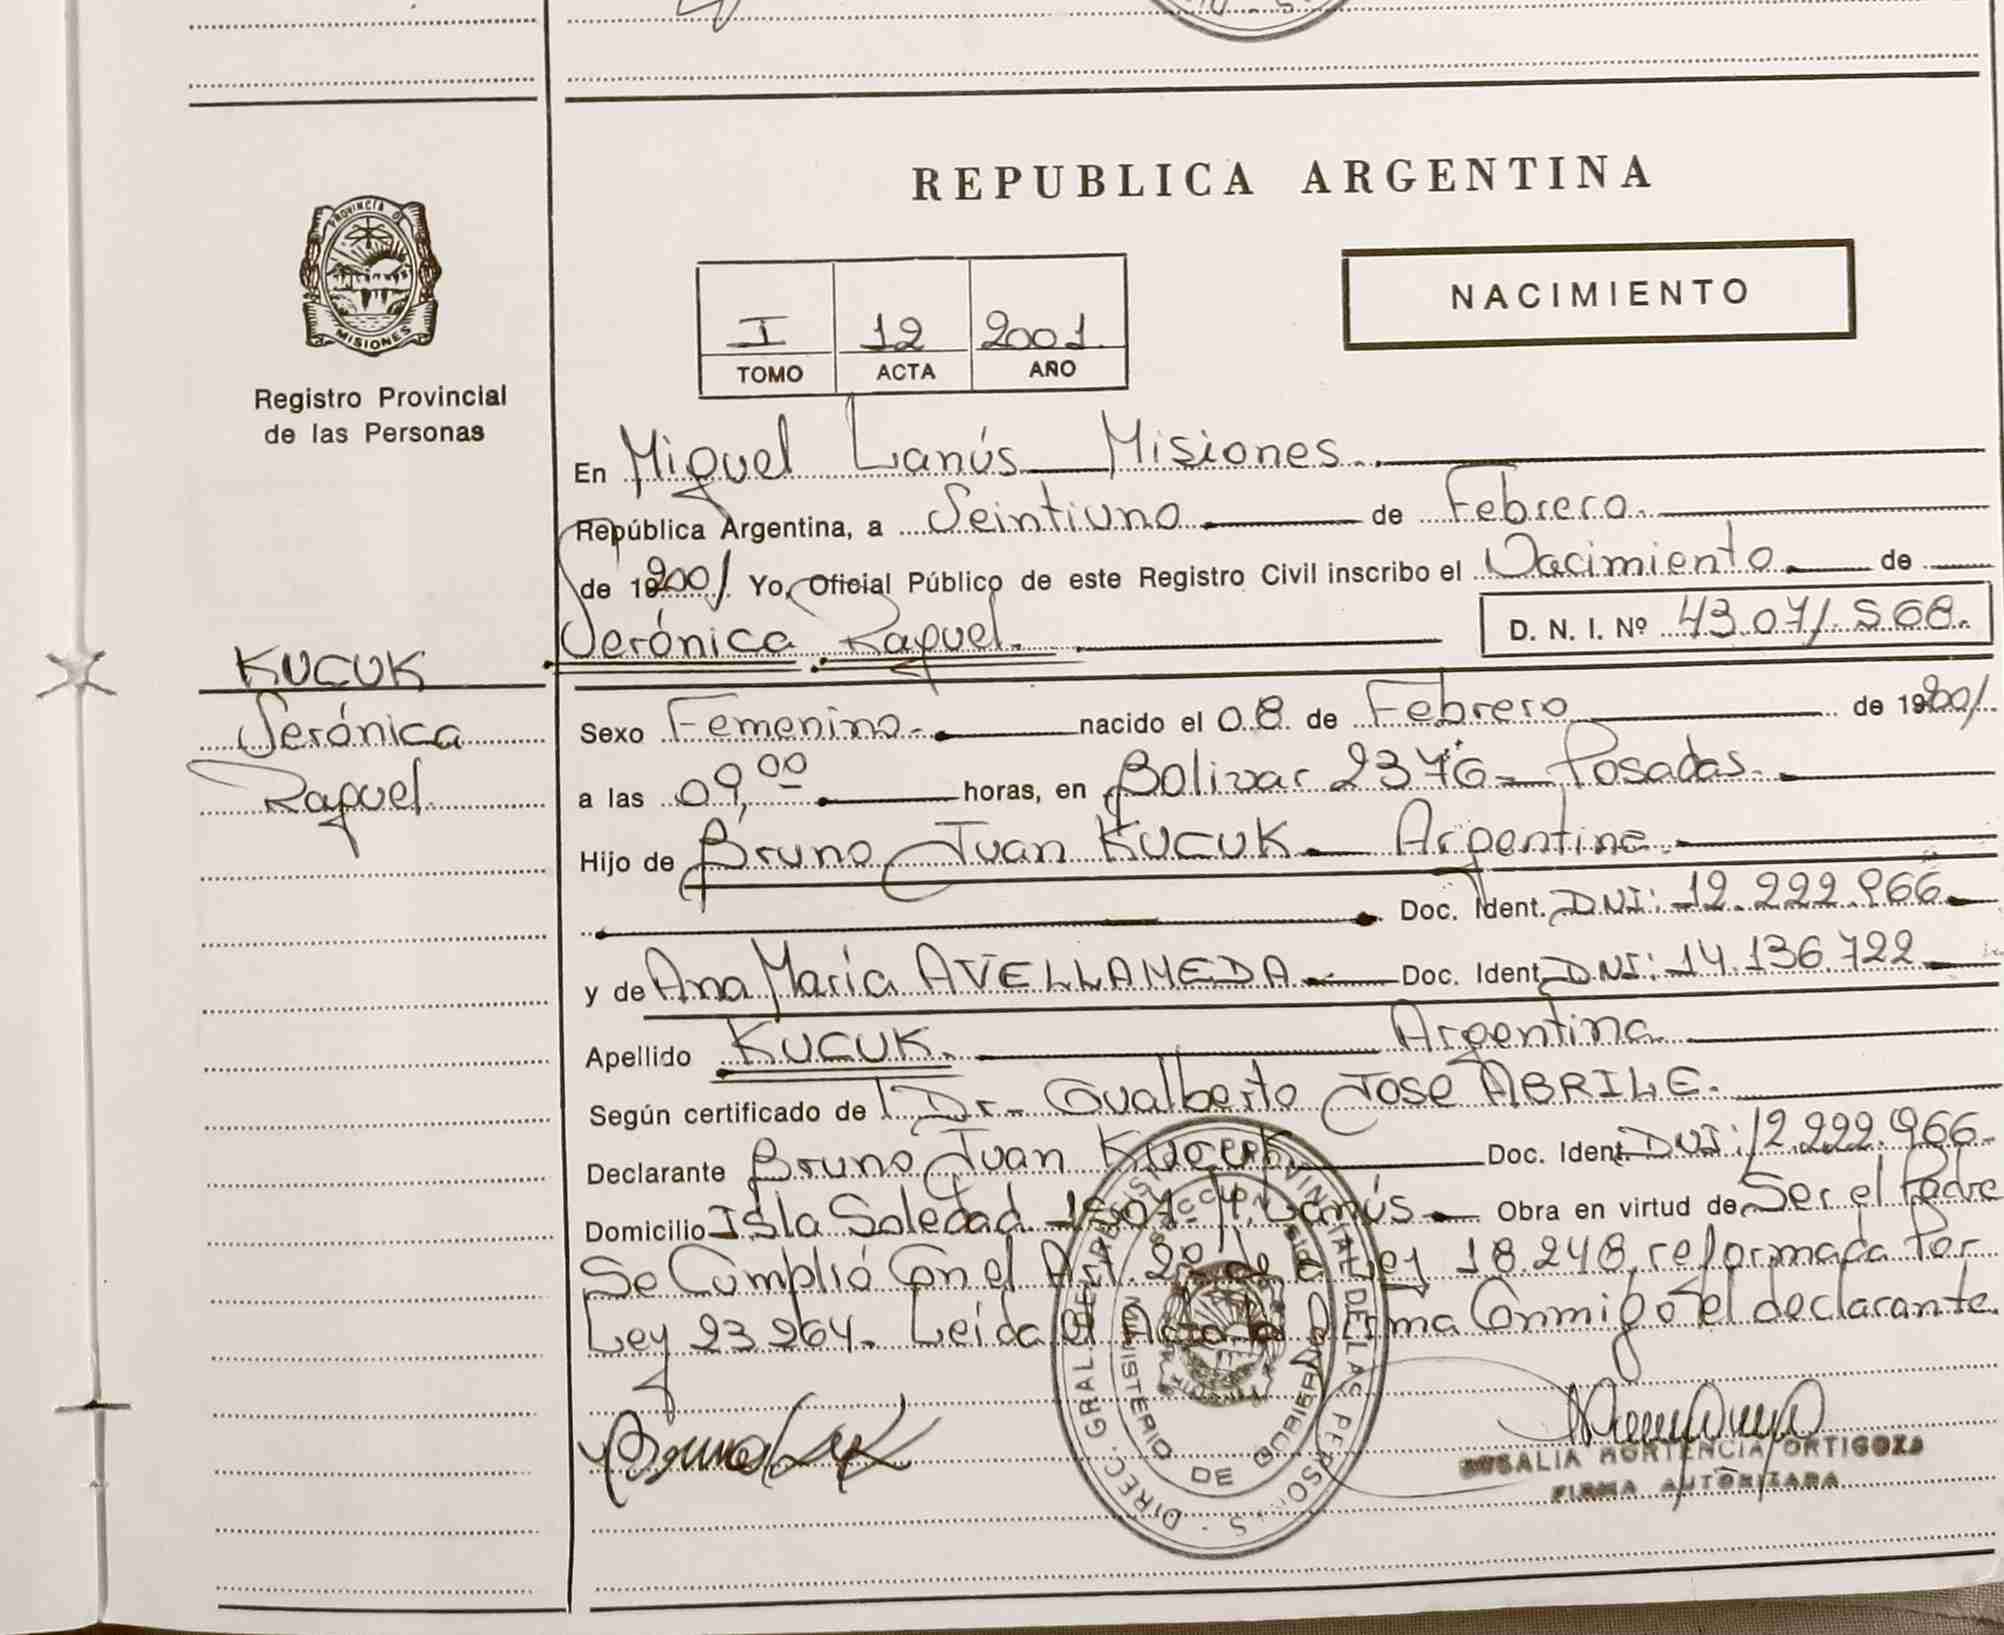 REPUBLICA ARGENTINA
PROVINCIA DE
MISIONES
Registro Provincial
de las Personas
I 12 2001
TOMO ACTA AÑO
NACIMIENTO
En Miguel Lanús Misiones
República Argentina, a Veintiuno de Febrero
de 192001 Yo, Oficial Público de este Registro Civil inscribo el Nacimiento de
Verónica Raquel. D. N. I. Nº 43.071.568.
KUCUK
Verónica
Raquel
Sexo Femenino nacido el 08 de Febrero de 192001
a las 09,00 horas, en Bolivar 2376 Posadas
Hijo de Bruno Juan KUCUK Argentino
Doc. Ident. DNI: 12.222.966
y de Ana María AVELLANEDA Doc. Ident. DNI: 14.136.722
Apellido KUCUK. Argentina
Según certificado de Dr. Gualberto Jose ABRILE.
Declarante Bruno Juan Kucuk Doc. Ident. DNI: 12.222.966
Domicilio Isla Soledad Lanús Obra en virtud de Ser el Padre
Se Cumplió Con el Art. 2º de la Ley 18.248 reformada Por
Ley 23.264. Leída el Acta la Firma Conmigo el declarante.
MINISTERIO DE GOBIERNO
ROSALIA HORTENCIA ORTIGOZA
FIRMA AUTORIZADA